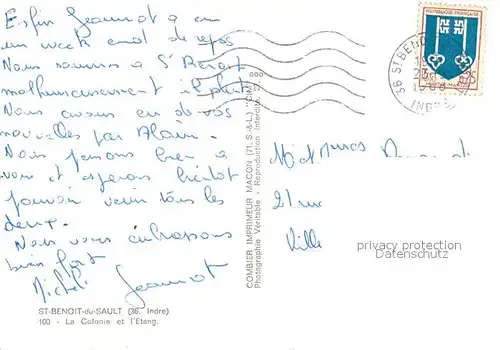 Enfin Jeannot a eu
un week end de repos
Nous sommes a St Benoit
malheureusement il pleut
Nous avons eu de vos
nouvelles par Alain.
Nous pensons bien a
vous et esperons bientot
pouvoir venir tous les
deux.
Nous vous embrassons
bien fort
Micheli Jeannot
ST-BENOIT-du-SAULT (36. Indre)
100 - La Colonie et l'Etang.
COMBIER IMPRIMEUR MACON (71. S.-&-L.) "CIM"
Photographie Véritable - Reproduction Interdite
REPUBLIQUE FRANÇAISE
36 ST BENOIT
INDRE
M et Mmes
21 rue
Ville
privacy protection
Datenschutz